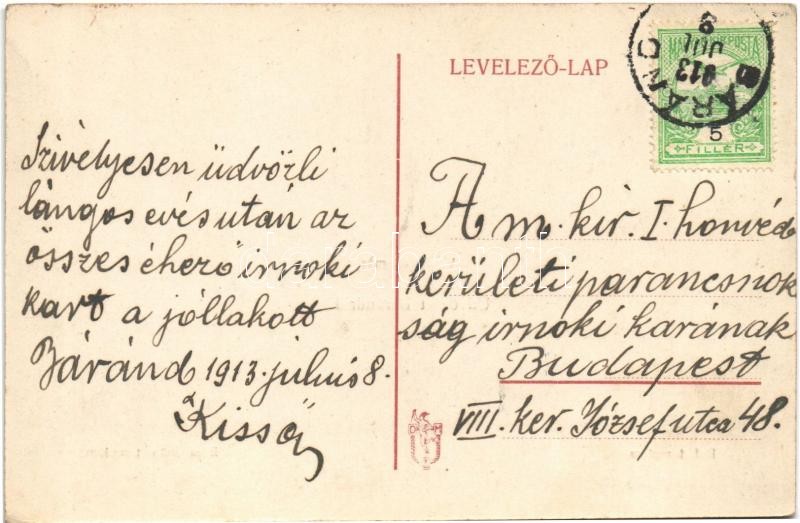 LEVELEZŐ-LAP
BÁRÁND
913
JUL
9
MAGYAR KIR. POSTA
5
FILLÉR
Szivélyesen üdvözli
lángos evés után az
összes éhező irnoki
kart a jóllakott
Báránd 1913. július 8.
Kiss
A m. kir. I. honvéd
kerületi parancsnok
ság irnoki karának
Budapest
VIII. ker. József utca 48.